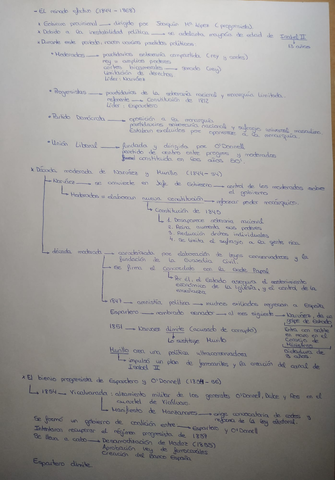 • El reinado efectivo (1844 - 1868)
• Gobierno provisional → dirigido por Joaquín Mª López (progresista)
• Debido a la inestabilidad política → se adelanta mayoría de edad de Isabel II
13 años
• Durante este periodo varios partidos políticos
• Moderados → partidarios soberanía compartida (rey y cortes)
rey y amplios poderes
Cortes bicamerales → Senado (rey)
Limitación de derechos
Líder: Narváez
• Progresistas → partidarios de la soberanía nacional y monarquía limitada.
referente → Constitución de 1812
Líder: Espartero
• Partido Demócrata → oposición a la monarquía
partidarios soberanía nacional y sufragio universal masculino
• Unión Liberal → fundada y dirigida por O'Donnell
partido de centro entre progres y moderados
constituido en los años 50'
• Década moderada de Narváez y Murillo (1844-54)
• Narváez → se convierte en Jefe de Gobierno
→ Moderados elaboraron nueva constitución → reforzar poder monárquico.
→ Constitución de 1845
1. Desaparece soberanía nacional
2. Reina aumenta sus poderes
3. Reducción dchos. individuales
4. Se limita el sufragio a la gente rica
• década moderada → caracterizada por elaboración de leyes conservadoras y la fundación de la Guardia Civil.
→ Se firma el Concordato con la Santa Sede
→ En él, el Estado acepta el mantenimiento económico de la Iglesia, y el control de la enseñanza
→ 1847 → amnistía política → muchos exiliados regresan a España
Espartero → nombrado senador → al mes siguiente → Narváez, da un golpe de Estado
→ 1851 → Narváez dimite (acusado de corrupto)
→ sustituye Murillo
Murillo crea una política ultraconservadora
→ impulsó un plan de ferrocarriles, y la creación del canal de Isabel II
• El bienio progresista de Espartero y O'Donnell (1854-56)
• 1854 → Vicalvarada: alzamiento militar de los generales O'Donnell, Dulce y Ros en el cuartel de Vicálvaro.
→ Manifiesto de Manzanares → exige convocatoria de cortes y reforma de la ley electoral.
Se formó un gobierno de coalición entre Espartero y O'Donnell
Intentaron recuperar el régimen progresista de 1837
Se lleva a cabo → Desamortización de Madoz (1855)
Aprobación Ley de ferrocarriles
Creación del Banco España
Espartero dimite